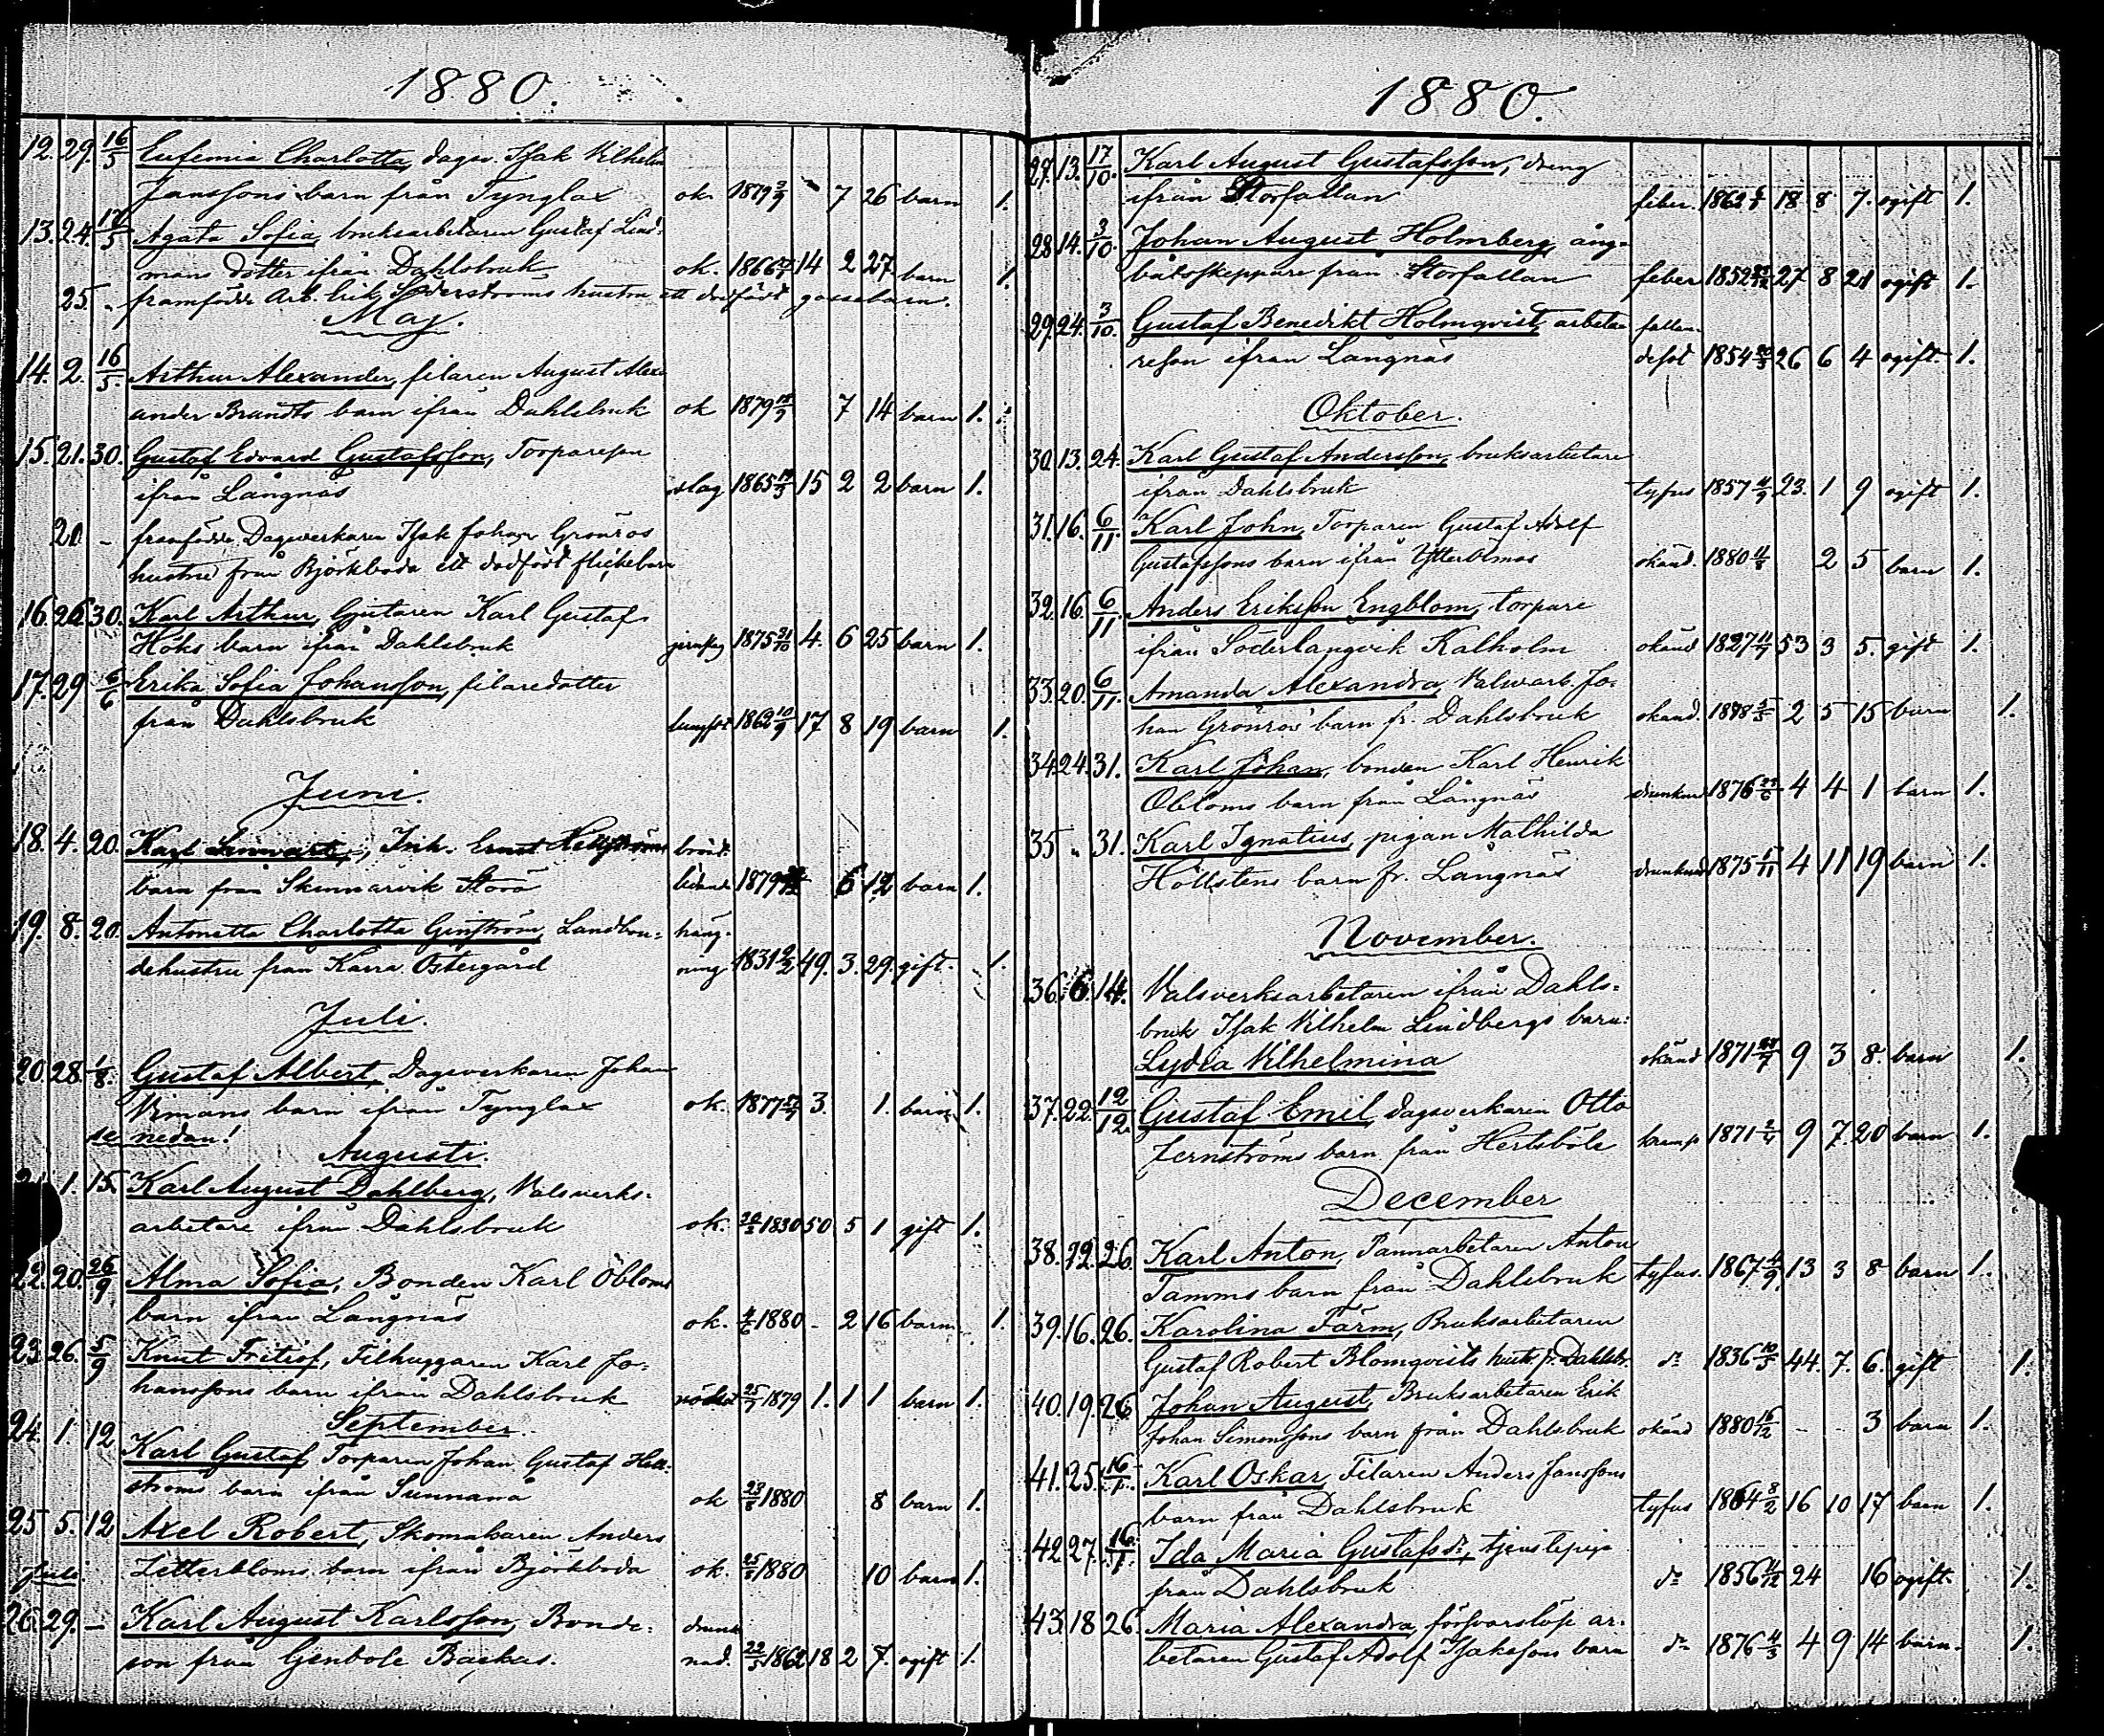 1880.
12. 29. 16/5 Eufemia Charlotta, dagsv. Isak Vilhelm
Janssons barn från Tynglax ok. 1879 7 26 barn 1.
13. 24. 17/5 Agata Sofia, bruksarbetaren Gustaf Lind-
mans dotter ifrån Dahlsbruk ok. 1866 14 2 27 barn 1.
25. framfödde Arb. Erik Söderströms hustru ett dödfödt gossebarn.
Maj.
14. 2. 16/5. Arthur Alexander, filaren August Alex-
ander Brandts barn ifrån Dahlsbruk ok 1879 7 14 barn 1.
15. 21. 30. Gustaf Edvard Gustafsson, Torpareson
ifrån Långnäs slag 1865 15 2 2 barn 1.
20 - framfödde Dagsverkaren Isak Johan Grönros
hustru från Björkboda ett dödfödt flickebarn
16. 26. 30. Karl Arthur, Gjutaren Karl Gustaf
Höks barn ifrån Dahlsbruk 1875 4. 6 25 barn 1.
17. 29 6/6 Erika Sofia Johansson, filaredotter
från Dahlsbruk lungsot 1862 10/9 17 8 19 barn 1.
Juni.
18. 4. 20. Karl Inh. Ernst bröst-
barn från Skinnarvik Storö 1879 6 12 barn 1.
19. 8. 20. Antonetta Charlotta Ginström, Landbon- häng-
dehustru från Kärra Östergård ning 1831 49. 3. 29. gift. 1.
Juli.
20. 28. 1/8. Gustaf Albert, Dagsverkaren Johan
Vimans barn ifrån Tynglax ok. 1877 3. 1. barn 1.
se nedan!
Augusti.
21 1. 15. Karl August Dahlberg, Valsverks-
arbetare ifrån Dahlsbruk ok. 1830 50 5 1 gift 1.
22. 20. 26/9 Alma Sofia, Bonden Karl Öbloms
barn ifrån Långnäs ok. 4/6 1880 - 2 16 barn 1.
23. 26. 5/9 Knut Fritiof, Filhuggaren Karl Jo-
hanssons barn ifrån Dahlsbruk 25/7 1879 1. 1 1 barn 1.
September.
24. 1. 12 Karl Gustaf, Torparen Johan Gustaf Hell-
ströms barn ifrån Sunnanå ok 23/8 1880 8 barn 1.
25 5. 12 Axel Robert, Skomakaren Anders
Juli. Zetterbloms barn ifrån Björkboda ok. 25/8 1880 10 barn 1.
26. 29. - Karl August Karlsson, Bonde- drunk-
son från Genböle Backas. nad. 22/5 1862 18 2 7. ogift 1.
1880.
27. 13. 17/10. Karl August Gustafsson, dreng
ifrån Storfallan feber. 1862 18 8 7. ogift 1.
28. 14. 3/10. Johan August Holmberg, ång-
båtsskeppare från Storfallan feber 1852 27 8 21 ogift 1.
29. 24. 3/10. Gustaf Benedikt Holmqvist, arbeta- fallan-
reson ifrån Långnäs desot 1854 26 6 4 ogift 1.
Oktober.
30. 13. 24. Karl Gustaf Andersson, bruksarbetare
ifrån Dahlsbruk tyfus 1857 4/9 23. 1 9 ogift 1.
31. 16. 6/11. Karl John, Torparen Gustaf Adolf
Gustafssons barn ifrån Ytterölmos okänd. 1880 2 5 barn 1.
32. 16. 6/11 Anders Eriksson Engblom, torpare
ifrån Söderlångvik Kalholm okänd 1827 53 3 5. gift 1.
33. 20. 6/11. Amanda Alexandra, Valsvarb. Jo-
han Grönros' barn fr. Dahlsbruk okänd. 1878 2 5 15 barn 1.
34. 24. 31. Karl Johan, bonden Karl Henrik
Öbloms barn från Långnäs drunknad 1876 4 4 1 barn 1.
35 „ 31. Karl Ignatius, pigan Mathilda
Höllstens barn fr. Långnäs drunknad 1875 4 11 19 barn 1.
November.
36. 6. 14. Valsverksarbetaren ifrån Dahls-
bruk Isak Vilhelm Lindbergs barn:
Lydia Vilhelmina okänd 1871 9 3 8. barn 1.
37. 22. 12/12. Gustaf Emil, dagsverkaren Otto
Jernströms barn från Hertsböle kramp 1871 2/4 9 7. 20 barn 1.
December
38. 12. 26. Karl Anton, Pannarbetaren Anton
Tamms barn från Dahlsbruk tyfus. 1867 4/9 13 3 8 barn 1.
39. 16. 26. Karolina Färm, Bruksarbetaren
Gustaf Robert Blomqvists hustr. fr. Dahlsbr. do 1836 10/5 44. 7. 6. gift 1.
40. 19. 26. Johan August, Bruksarbetaren Erik
Johan Simonssons barn från Dahlsbruk okänd 1880 16/12 - - 3 barn 1.
41. 25. 16/1. Karl Oskar, Filaren Anders Janssons
barn från Dahlsbruk tyfus 1864 8/2 16 10 17 barn 1.
42. 27. 16/1. Ida Maria Gustafsdr, tjenstepiga
från Dahlsbruk do 1856 11/12 24 16 ogift. 1.
43. 18 26. Maria Alexandra, försvarslöse ar-
betaren Gustaf Adolf Isakssons barn do 1876 4/3 4 9 14 barn. 1.